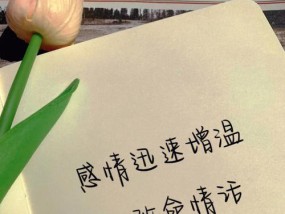 感情迅速增温
命情话